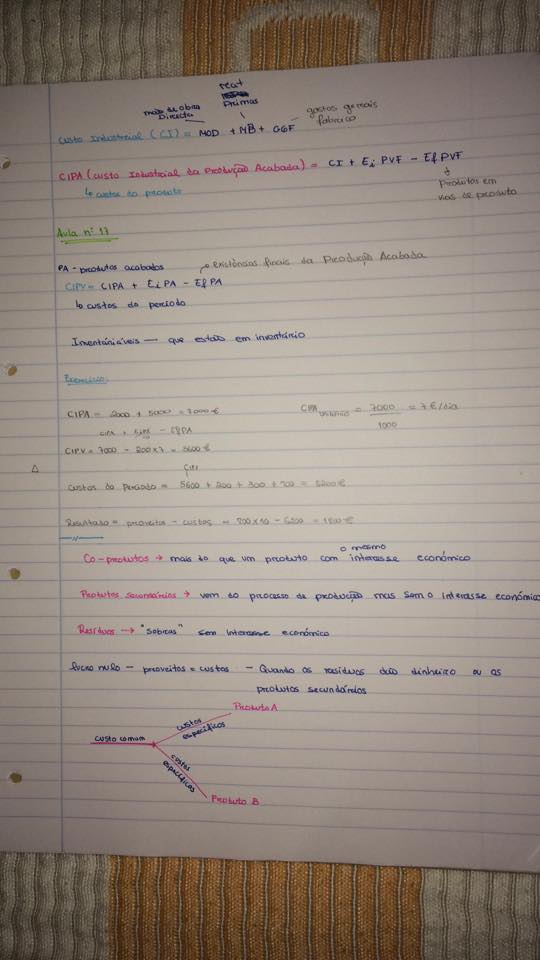 mão de obra
Directa
mat
Primas
Custo Industrial (CI) = MOD + MB + GGF
gastos gerais
fabrico
CIPA (custo Industrial da Produção Acabada) = CI + Ei PVF - Ef PVF
↳ custos do produto
Produtos em
vias de produto
Aula nº 17
PA - produtos acabados
existências finais da Produção Acabada
CIPV = CIPA + Ei PA - Ef PA
↳ custos do período
Inventáriáveis — que estão em inventário
Exercício:
CIPA = 2000 + 5000 = 7000 €
CIPA = 7000 / 1000 = 7 €/
CIPA + EiPA - EfPA
CIPV = 7000 - 200x7 = 5600 €
CIPV
Custos do Período = 5600 + 200 + 300 + 100 = 6200 €
Resultado = proveitos - custos = 800 x 10 - 6200 = 1800 €
Co-produtos → mais do que um produto com o mesmo interesse económico
Produtos secundários → vem do processo de produção mas sem o interesse económico
Resíduos → "sobras" sem interesse económico
lucro nulo - proveitos = custos - Quando os resíduos dão dinheiro ou os
produtos secundários
Produto A
custos
específicos
custo comum
custos
específicos
Produto B